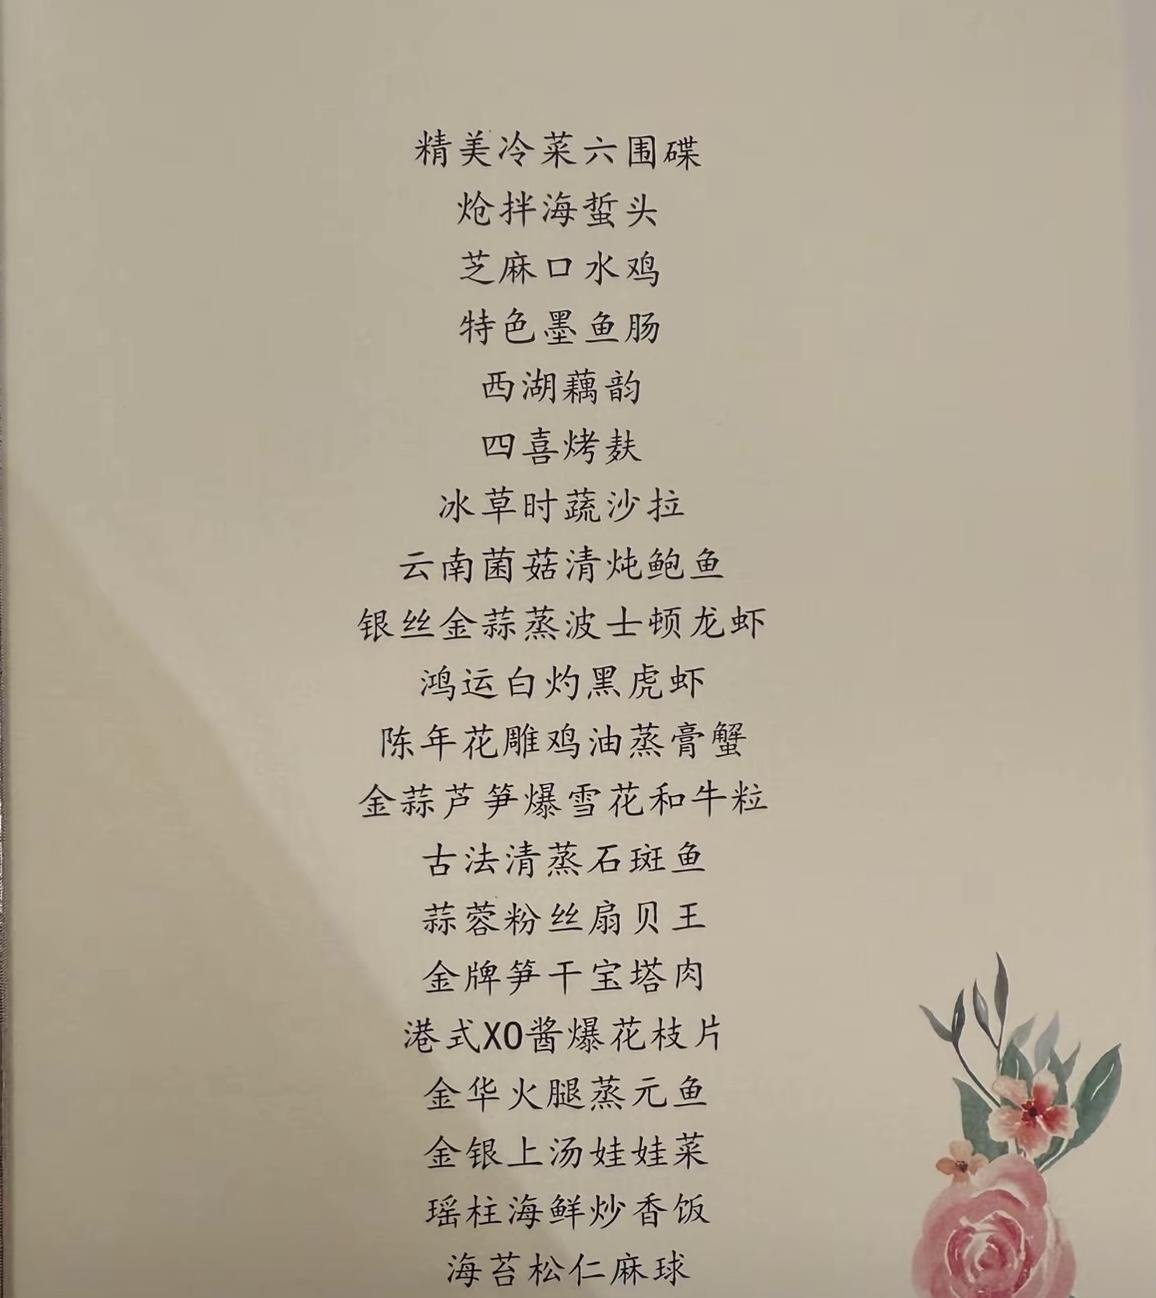 精美冷菜六围碟
炝拌海蜇头
芝麻口水鸡
特色墨鱼肠
西湖藕韵
四喜烤麸
冰草时蔬沙拉
云南菌菇清炖鲍鱼
银丝金蒜蒸波士顿龙虾
鸿运白灼黑虎虾
陈年花雕鸡油蒸膏蟹
金蒜芦笋爆雪花和牛粒
古法清蒸石斑鱼
蒜蓉粉丝扇贝王
金牌笋干宝塔肉
港式XO酱爆花枝片
金华火腿蒸元鱼
金银上汤娃娃菜
瑶柱海鲜炒香饭
海苔松仁麻球